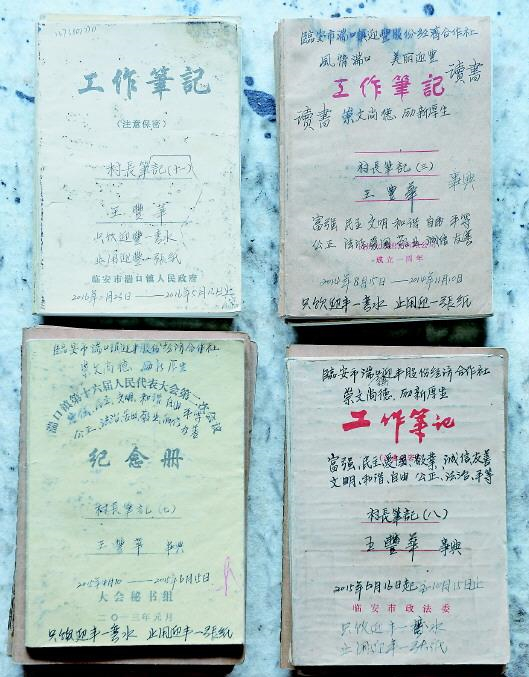 工作筆記
(注意保密)
村長筆記(十一)
王豐華
只飲迎豐一壺水
止用迎豐一张纸
临安市湍口镇人民政府
臨安市湍口鎮迎豐股份經濟合作社
風情湍口 美丽迎豊
工作筆記
讀書
讀書
崇文尚德、励新厚生
村長筆記(三)
王豐華
事典
富强 民主 文明 和谐 自由 平等
公正 法治 爱国 敬业 诚信 友善
成立一周年
2014年8月15日——2014年11月10日
只饮迎丰一壺水 止用迎一张紙
臨安市湍口鎮迎丰股份经济合作社
崇文尚德、励新厚生
湍口镇第十六届人民代表大会第二次会议
富强、民主、文明、和谐 自由 平等
公正、法治、爱国 敬业、诚信 友善
纪念册
村長筆記(七)
王豐華
事典
大会秘书组
二〇一三年元月
只饮迎丰一壺水 止用迎丰一张纸
臨安市湍口鎮迎丰股份经济合作社
崇文尚德、励新厚生
工作筆记
富强、民主、爱國、敬業、诚信、友善
文明、和谐、自由、公正、法治、平等
村長筆記(八)
王豐華
事典
2015年6月16日起至10月15日止
临安市政法委
只饮迎丰一壺水
止用迎丰一张纸